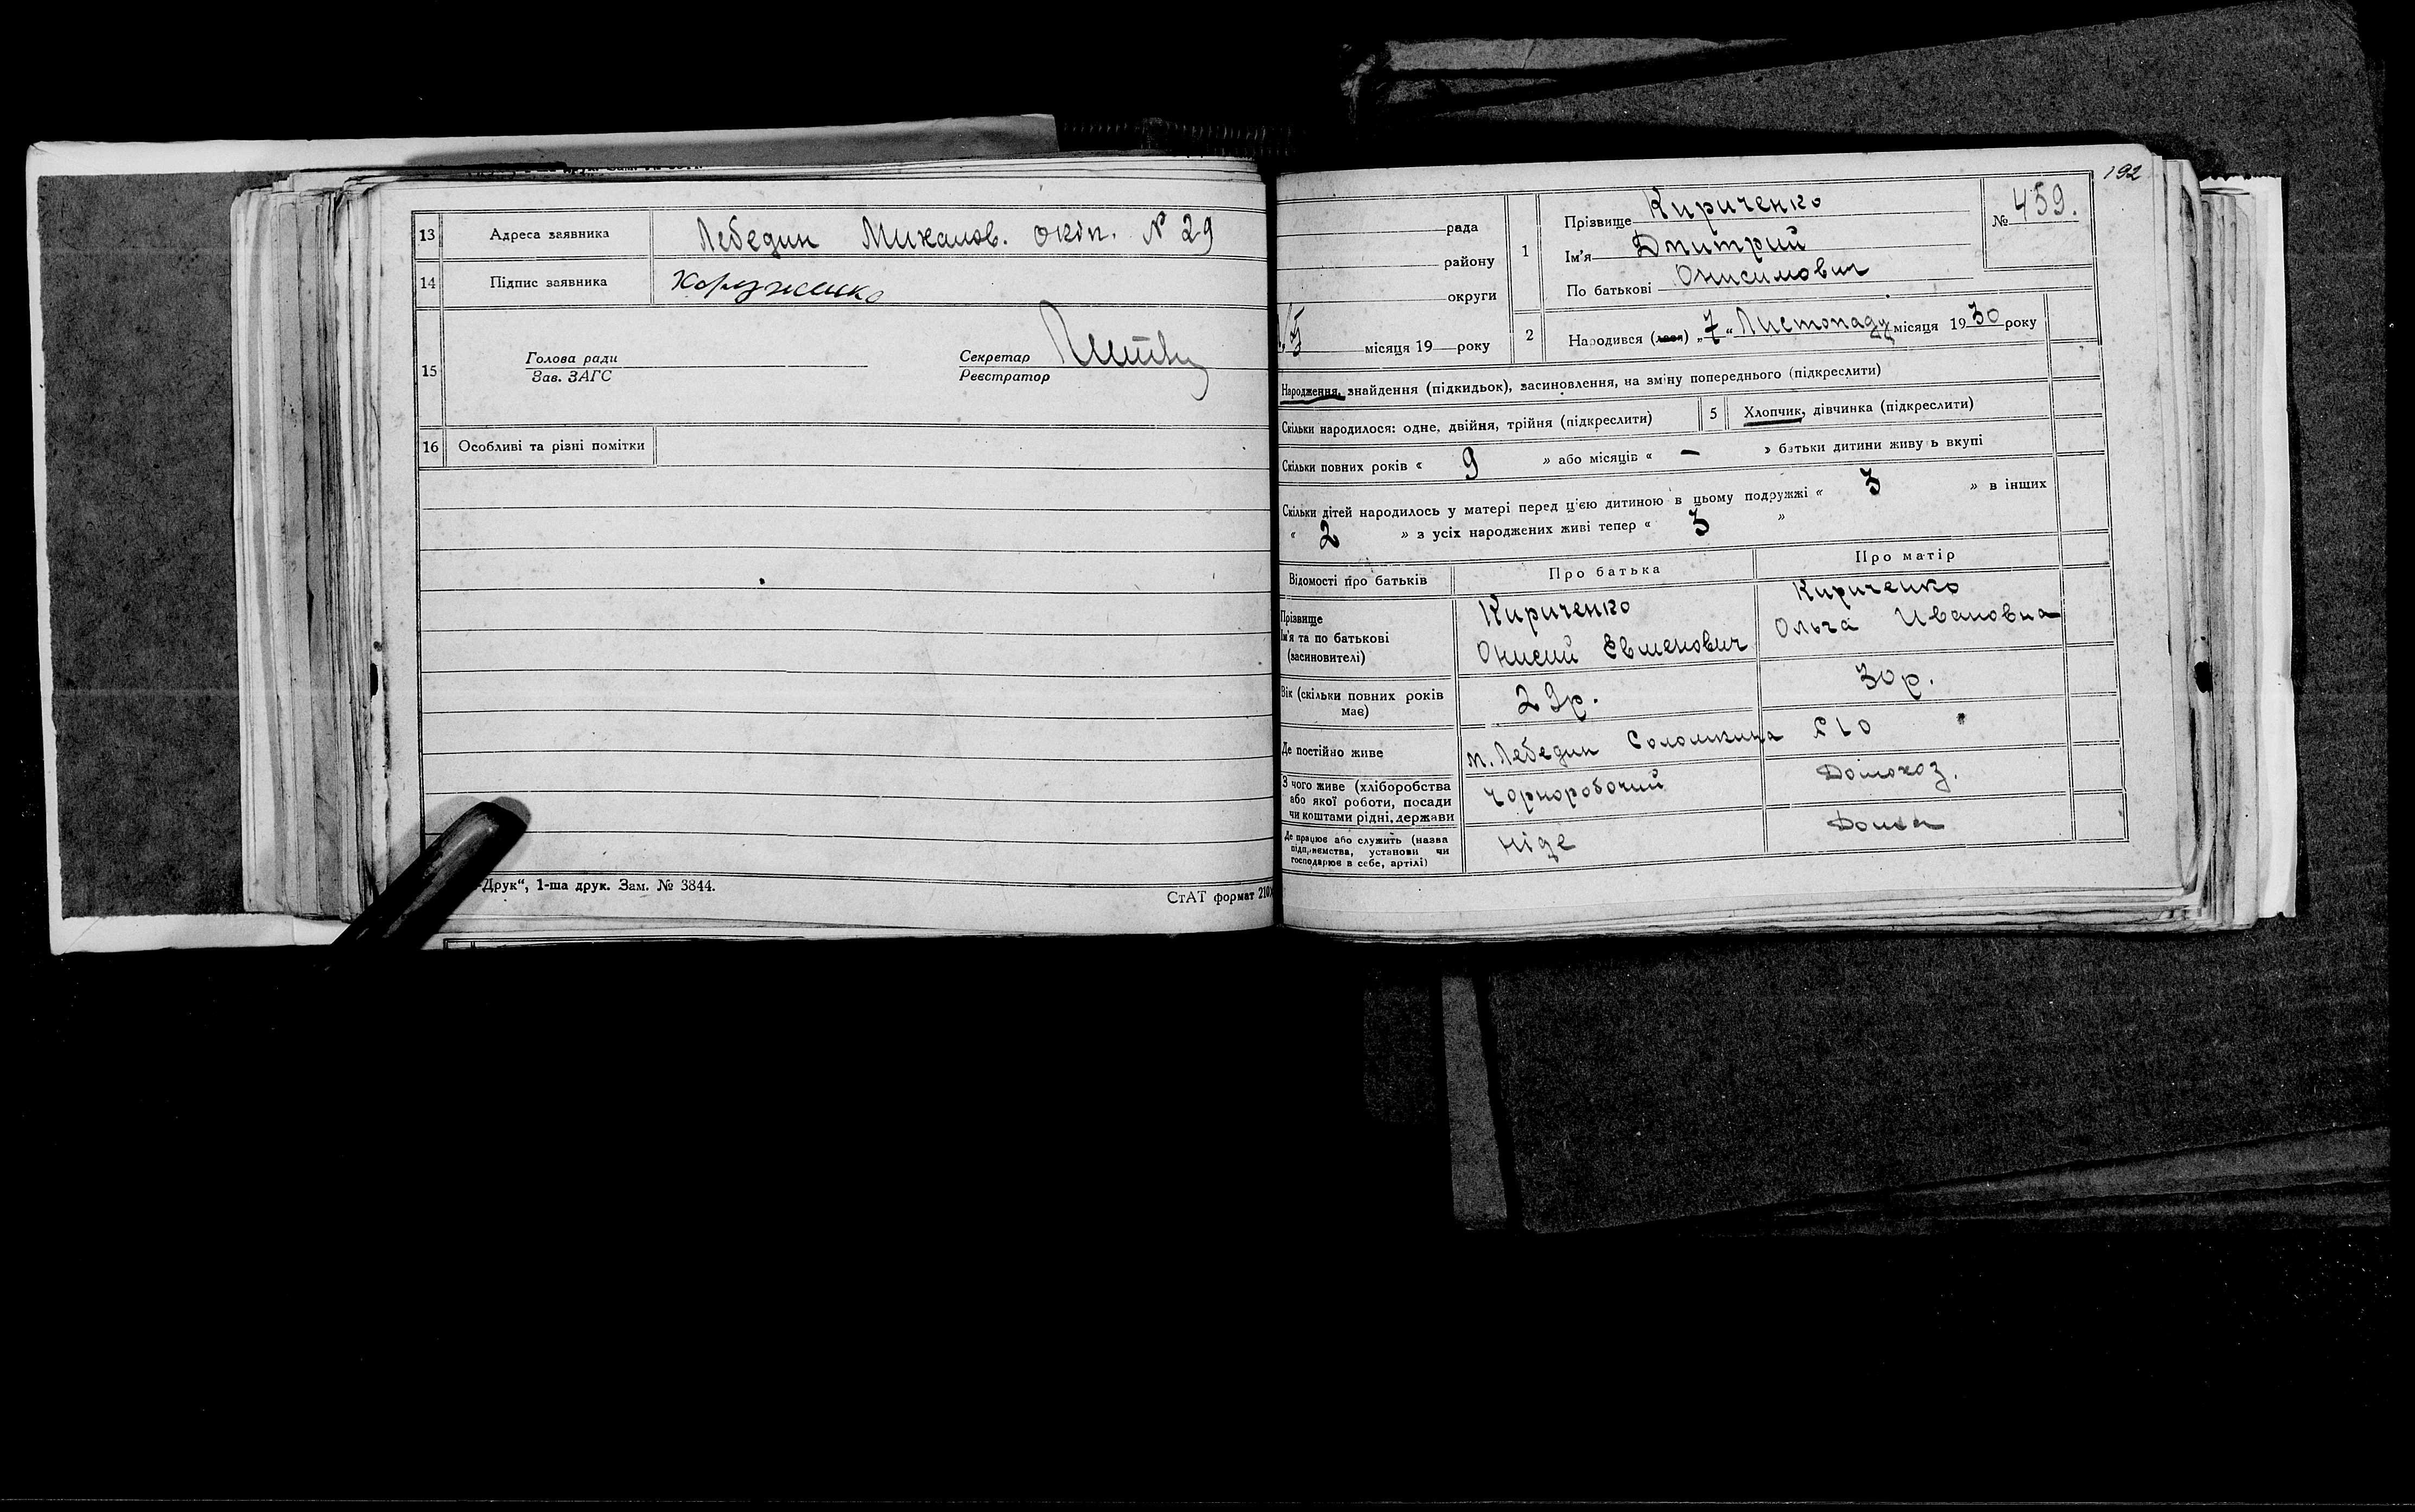 13 Адреса заявника Лебедин Михайлов. окіп. № 29
14 Підпис заявника
15 Голова ради Секретар
Зав. ЗАГС Реєстратор
16 Особливі та різні помітки
-Друк“, 1-ша друк. Зам. № 3844.
СтАТ формат 210
192
рада
району
округи
місяця 19 року
1 Прізвище Кириченко № 459.
Ім'я Дмитрий
По батькові Онисимович
2 Народився (лася) „7“ Листопаду місяця 1930 року
Народження, знайдення (підкидьок), засиновлення, на зміну попереднього (підкреслити)
Скільки народилося: одне, двійня, трійня (підкреслити) 5 Хлопчик, дівчинка (підкреслити)
Скільки повних років « 9 » або місяців « — » батьки дитини живуь вкупі
Скільки дітей народилось у матері перед ц'єю дитиною в цьому подружжі « 3 » в інших
« 2 » з усіх народжених живі тепер « 3 »
Відомості про батьків Про батька Про матір
Прізвище Кириченко Кириченко
Ім'я та по батькові Онисий Евменович Ольга Ивановна
(засиновителі)
Вік (скільки повних років має) 29р. 30р.
Де постійно живе м. Лебедин 610
З чого живе (хліборобства Чорноробочий Домохоз.
або якої роботи, посади
чи коштами рідні, держави
Де працює або служить (назва ніде Дома
підприємства, установи чи
господарює в себе, артілі)